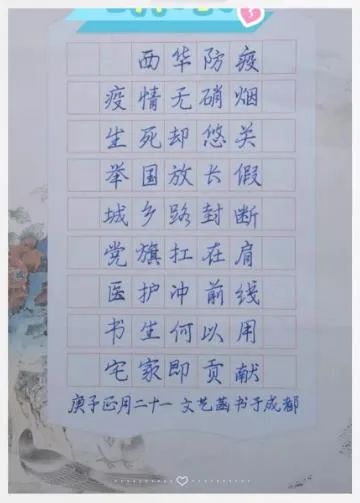 西华防疫
疫情无硝烟
生死却悠关
举国放长假
城乡路封断
党旗扛在肩
医护冲前线
书生何以用
宅家即贡献
庚子正月二十一 文艺菡书于成都